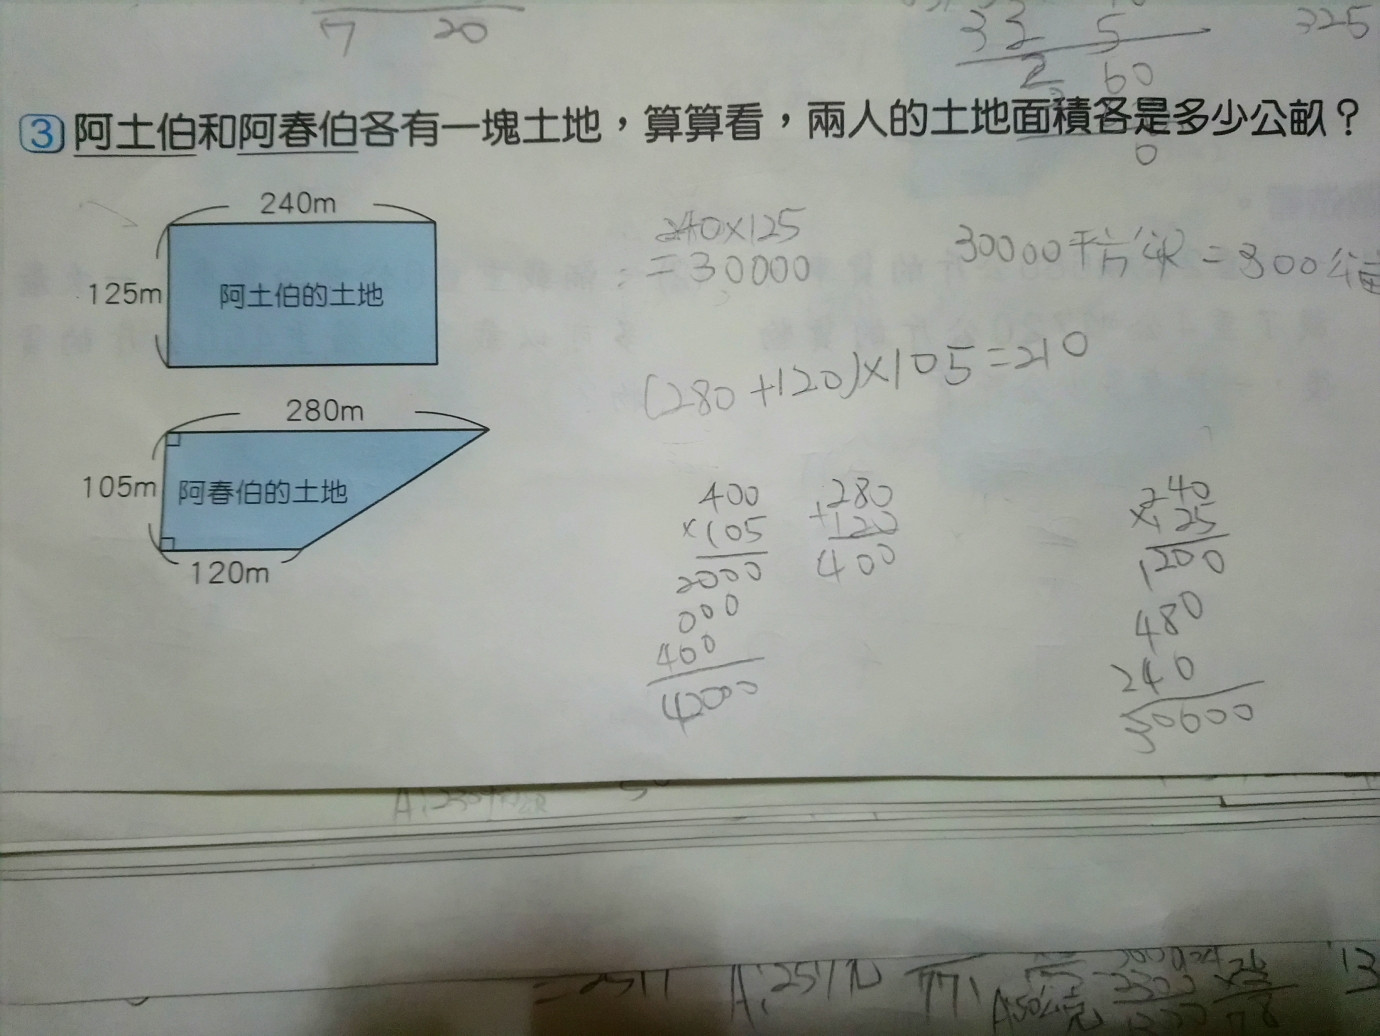 7 20
33 5
325
2 60
③ 阿土伯和阿春伯各有一塊土地，算算看，兩人的土地面積各是多少公畝？
0
240m
125m
阿土伯的土地
240×125
=30000
30000平方公尺=300公畝
280m
105m
阿春伯的土地
120m
(280+120)×105=210
400
×105
2000
000
400
42000
+280
120
400
240
×125
1200
480
240
30600
A:251
771
13